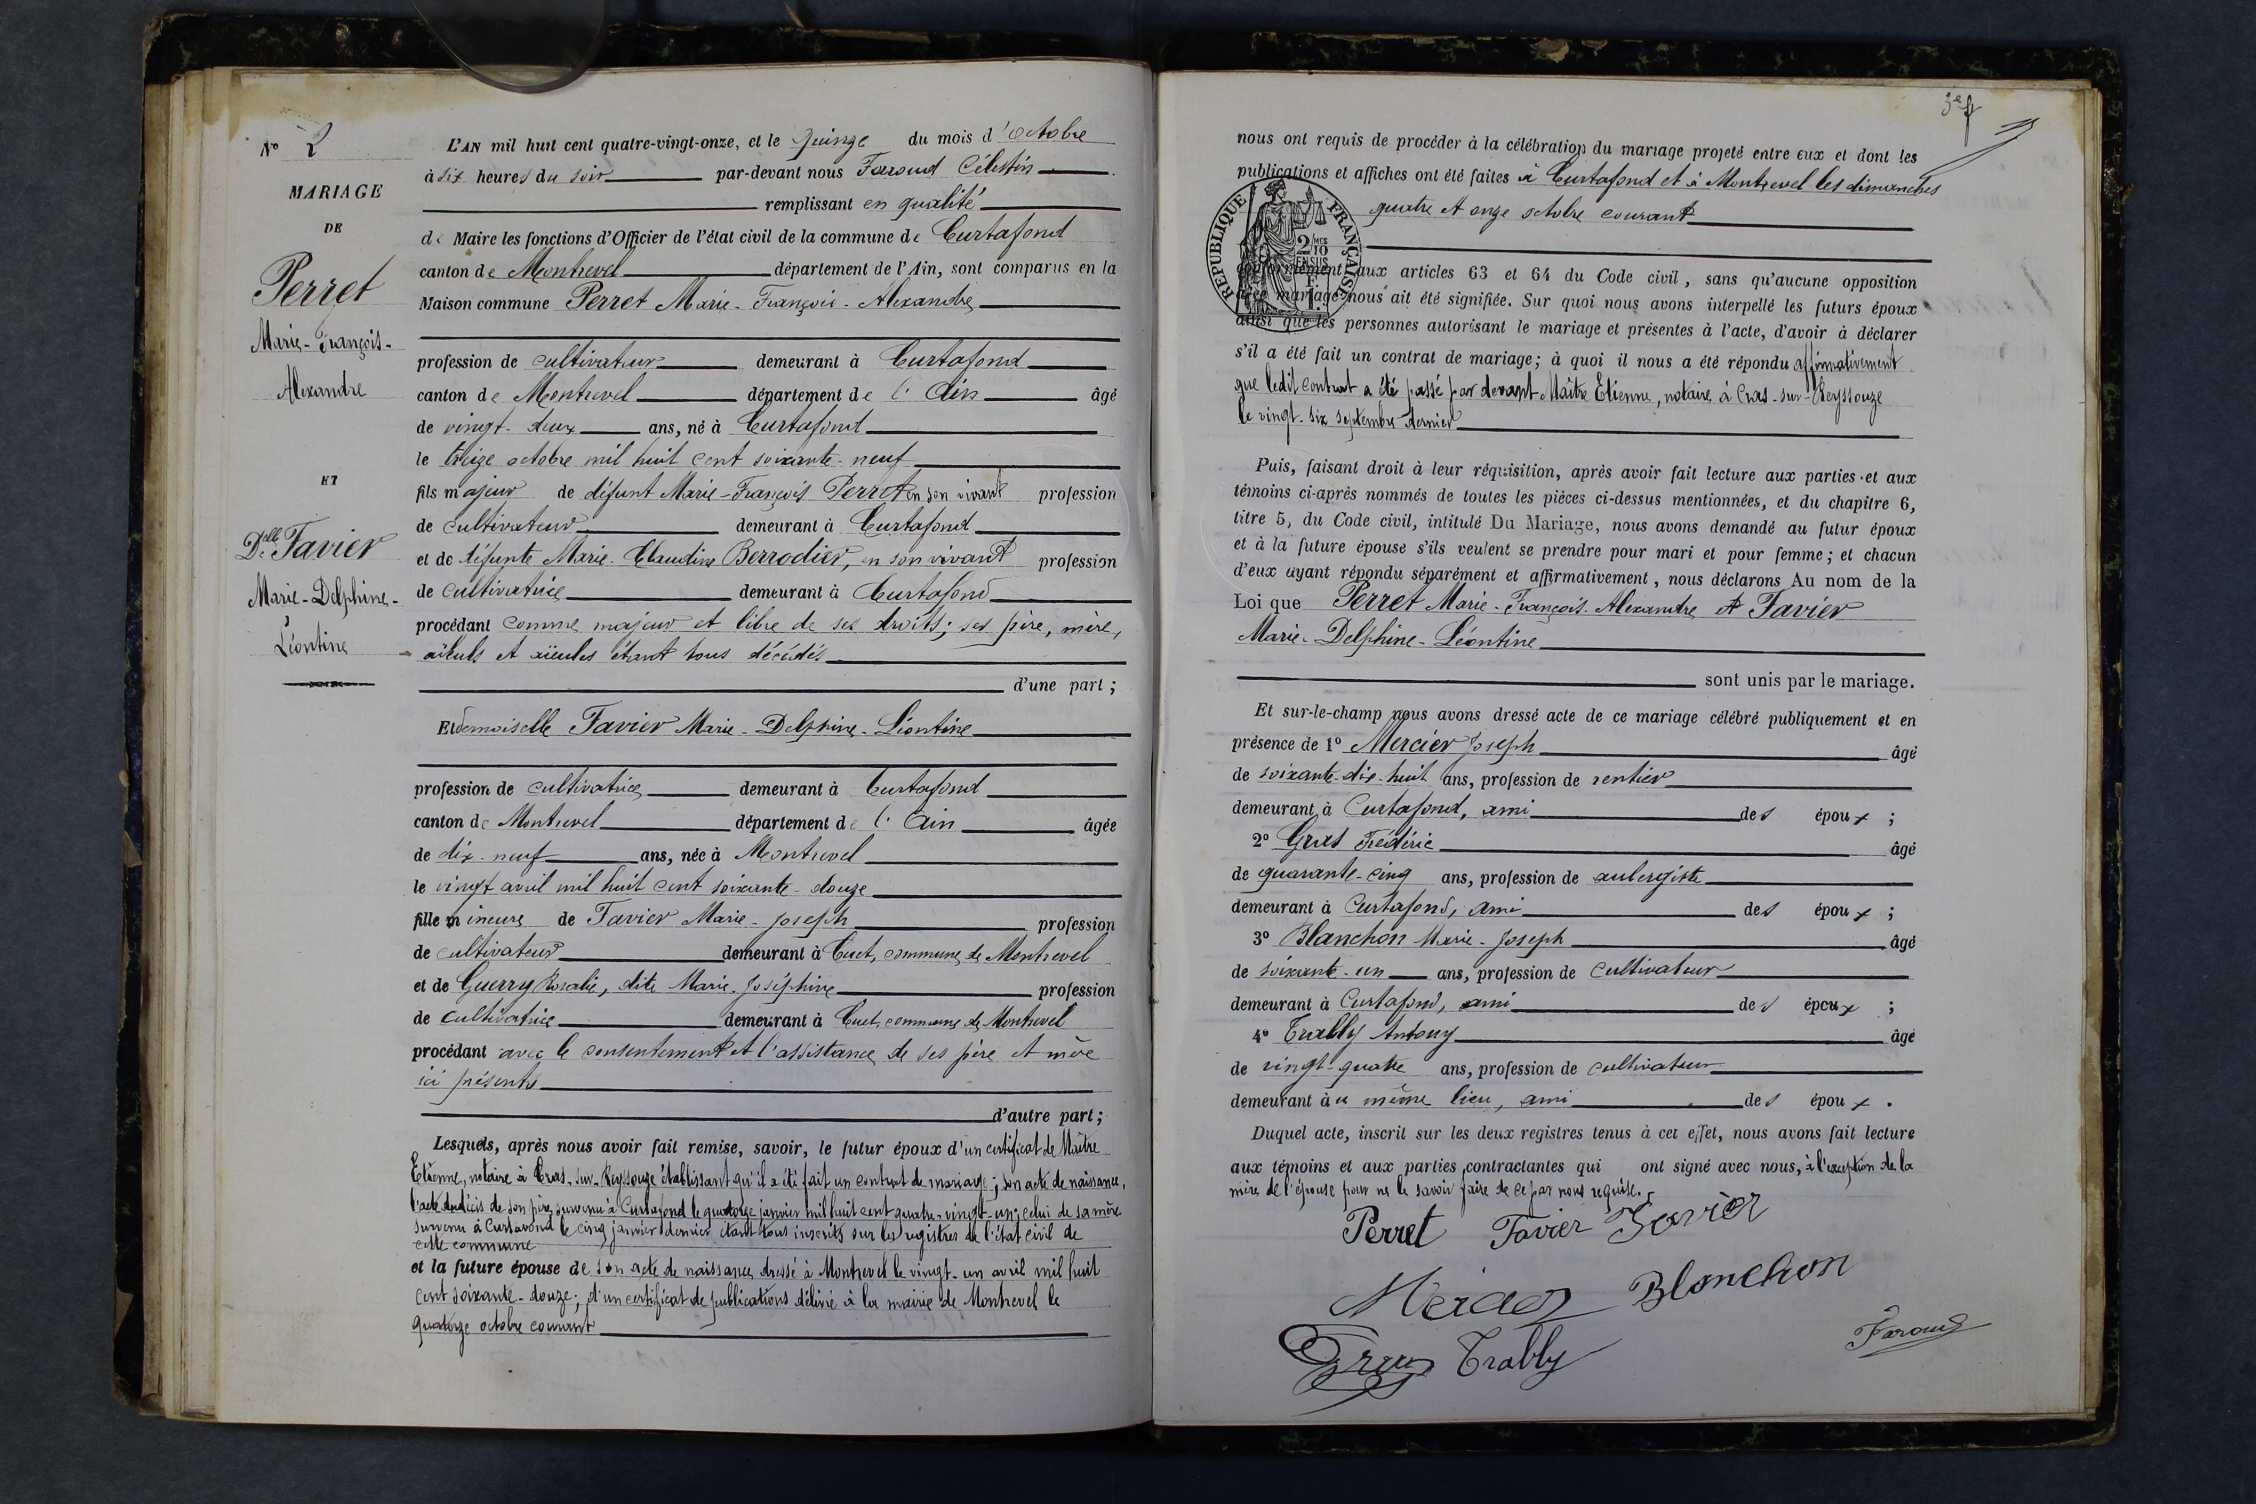 N° 2
MARIAGE
DE
Perret
Marie-François-
Alexandre
ET
Delle Favier
Marie-Delphine-
Léontine
L'AN mil huit cent quatre-vingt-onze, et le quinze du mois d'octobre
à six heures du soir par-devant nous Faroud Célestin
remplissant en qualité
de Maire les fonctions d'Officier de l'état civil de la commune de Curtafond
canton de Montrevel département de l'Ain, sont comparus en la
Maison commune Perret Marie-François-Alexandre
profession de cultivateur demeurant à Curtafond
canton de Montrevel département de l'Ain âgé
de vingt-deux ans, né à Curtafond
le treize octobre mil huit cent soixante-neuf
fils majeur de défunt Marie-François Perret en son vivant profession
de cultivateur demeurant à Curtafond
et de défunte Marie-Claudine Berrodier, en son vivant profession
de cultivatrice demeurant à Curtafond
procédant comme majeur et libre de ses droits; ses père, mère,
aïeuls et aïeules étant tous décédés
d'une part;
Et demoiselle Favier Marie-Delphine-Léontine
profession de cultivatrice demeurant à Curtafond
canton de Montrevel département de l'Ain âgée
de dix-neuf ans, née à Montrevel
le vingt avril mil huit cent soixante-douze
fille mineure de Favier Marie-Joseph profession
de cultivateur demeurant à Cuet, commune de Montrevel
et de Guerry Rosalie, dite Marie-Joséphine profession
de cultivatrice demeurant à Cuet, commune de Montrevel
procédant avec le consentement et l'assistance de ses père et mère
ici présents
d'autre part;
Lesquels, après nous avoir fait remise, savoir, le futur époux d'un certificat de Maître
Etienne, notaire à Cras-sur-Reyssouze établissant qu'il a été fait un contrat de mariage; son acte de naissance,
l'acte de décès de son père, survenu à Curtafond le quatorze janvier mil huit cent quatre-vingt-un; celui de sa mère
survenu à Curtafond le cinq janvier dernier étant tous inscrits sur les registres de l'état civil de
cette commune
et la future épouse de son acte de naissance dressé à Montrevel le vingt-un avril mil huit
cent soixante-douze; d'un certificat de publications délivré à la mairie de Montrevel le
quatorze octobre courant
3e f
nous ont requis de procéder à la célébration du mariage projeté entre eux et dont les
publications et affiches ont été faites à Curtafond et à Montrevel les dimanches
quatre et onze octobre courant
RÉPUBLIQUE FRANÇAISE
2/10
EN SUS
conformément aux articles 63 et 64 du Code civil, sans qu'aucune opposition
à ce mariage nous ait été signifiée. Sur quoi nous avons interpellé les futurs époux
ainsi que les personnes autorisant le mariage et présentes à l'acte, d'avoir à déclarer
s'il a été fait un contrat de mariage; à quoi il nous a été répondu affirmativement
que ledit contrat a été passé par devant Maître Etienne, notaire à Cras-sur-Reyssouze
le vingt-six septembre dernier
Puis, faisant droit à leur réquisition, après avoir fait lecture aux parties et aux
témoins ci-après nommés de toutes les pièces ci-dessus mentionnées, et du chapitre 6,
titre 5, du Code civil, intitulé Du Mariage, nous avons demandé au futur époux
et à la future épouse s'ils veulent se prendre pour mari et pour femme; et chacun
d'eux ayant répondu séparément et affirmativement, nous déclarons Au nom de la
Loi que Perret Marie-François-Alexandre et Favier
Marie-Delphine-Léontine
sont unis par le mariage.
Et sur-le-champ nous avons dressé acte de ce mariage célébré publiquement et en
présence de 1° Mercier Joseph âgé
de soixante-dix-huit ans, profession de rentier
demeurant à Curtafond, ami des époux;
2° Gras Frédéric âgé
de quarante-cinq ans, profession de aubergiste
demeurant à Curtafond, ami des époux;
3° Blanchon Marie-Joseph âgé
de soixante-un ans, profession de cultivateur
demeurant à Curtafond, ami des époux;
4° Trably Antony âgé
de vingt-quatre ans, profession de cultivateur
demeurant au même lieu, ami des époux.
Duquel acte, inscrit sur les deux registres tenus à cet effet, nous avons fait lecture
aux témoins et aux parties contractantes qui ont signé avec nous, à l'exception de la
mère de l'épouse pour ne le savoir faire de ce par nous requise.
Perret Favier Favier
Mercier Blanchon
Gras Trably Faroud